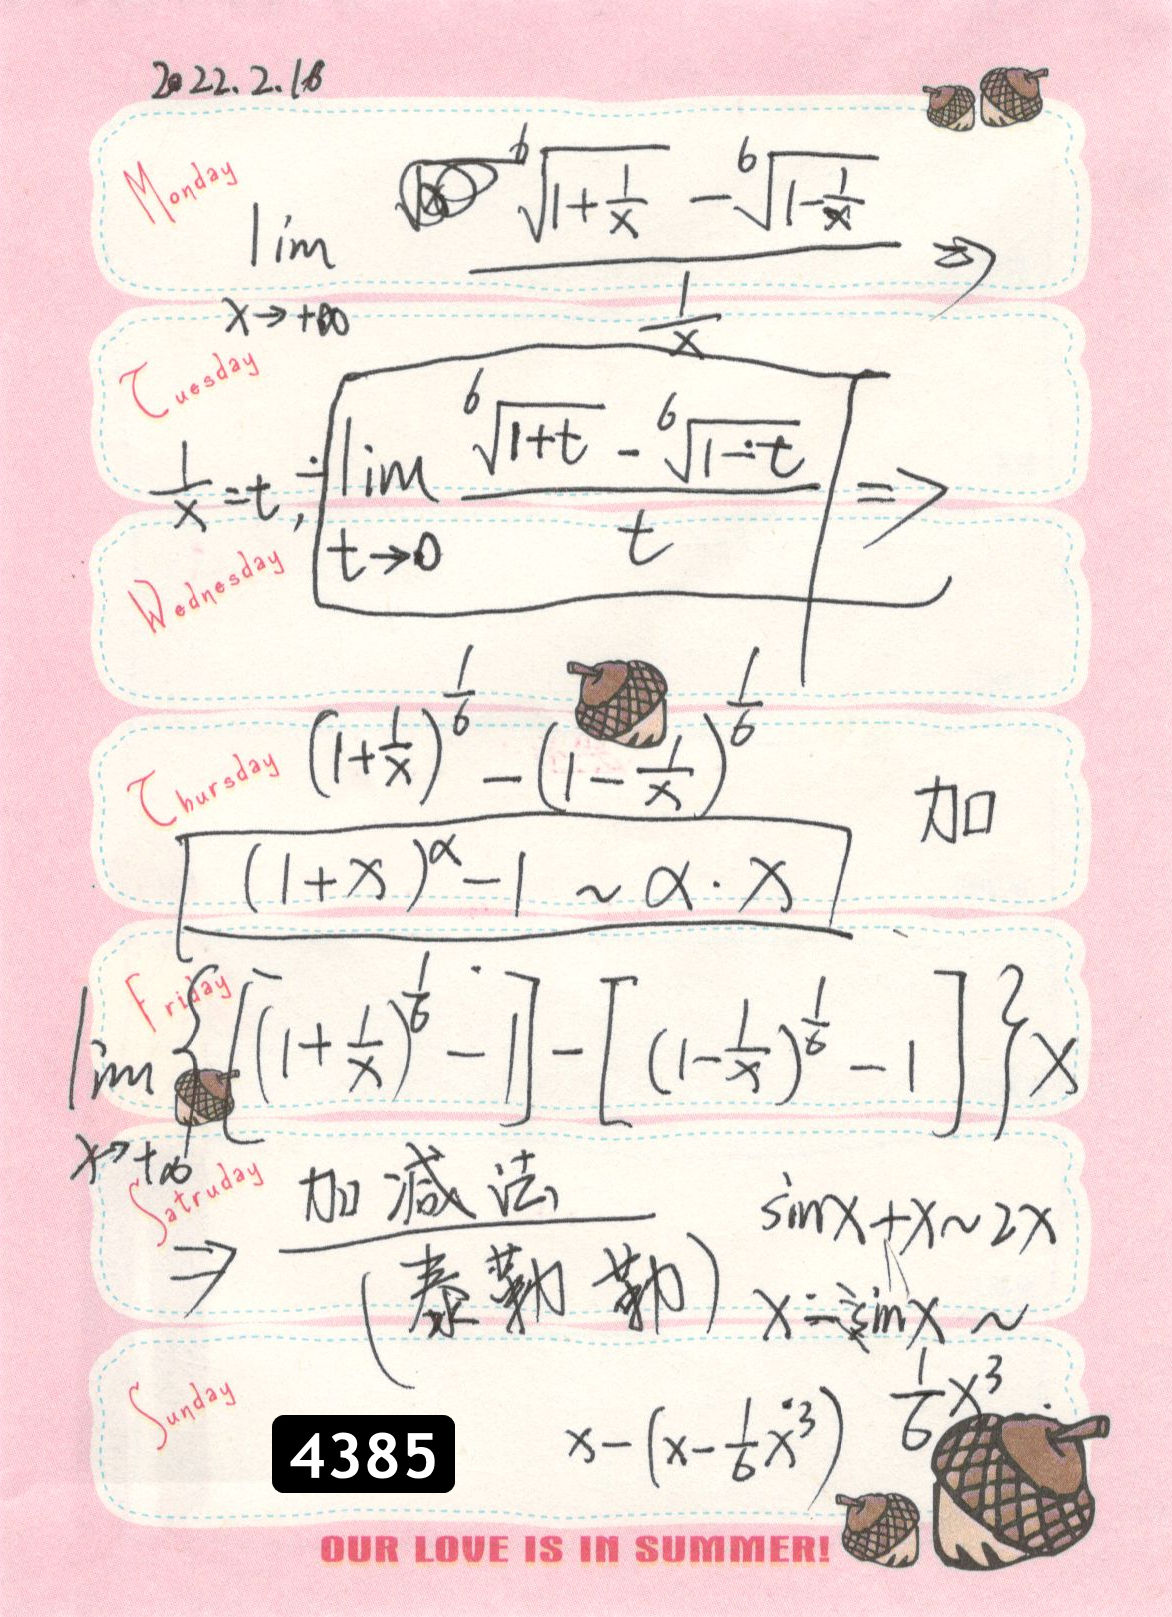 2022.2.18
Monday
lim x→+∞ (⁶√(1+1/x) - ⁶√(1-1/x)) / (1/x) ⇒
Tuesday
1/x=t, lim t→0 (⁶√(1+t) - ⁶√(1-t)) / t =>
Wednesday
(1+1/x)^(1/6) - (1-1/x)^(1/6)
Thursday
加
(1+x)^α-1 ~ α·x
Friday
lim x→+∞ {[(1+1/x)^(1/6) -1] - [(1-1/x)^(1/6) -1]}x
Satruday
⇒ 加减法
(泰勒勒)
sinx+x~2x
x-sinx ~ 1/6 x³
Sunday
x-(x-1/6 x³)
4385
OUR LOVE IS IN SUMMER!